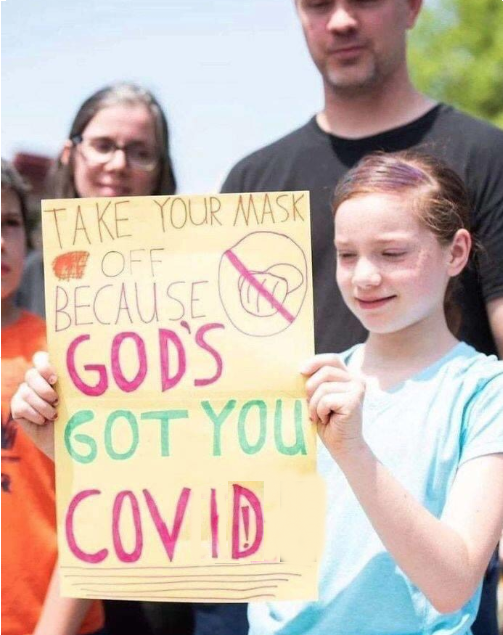 TAKE YOUR MASK
OFF
BECAUSE
GOD'S
GOT YOU
COVID